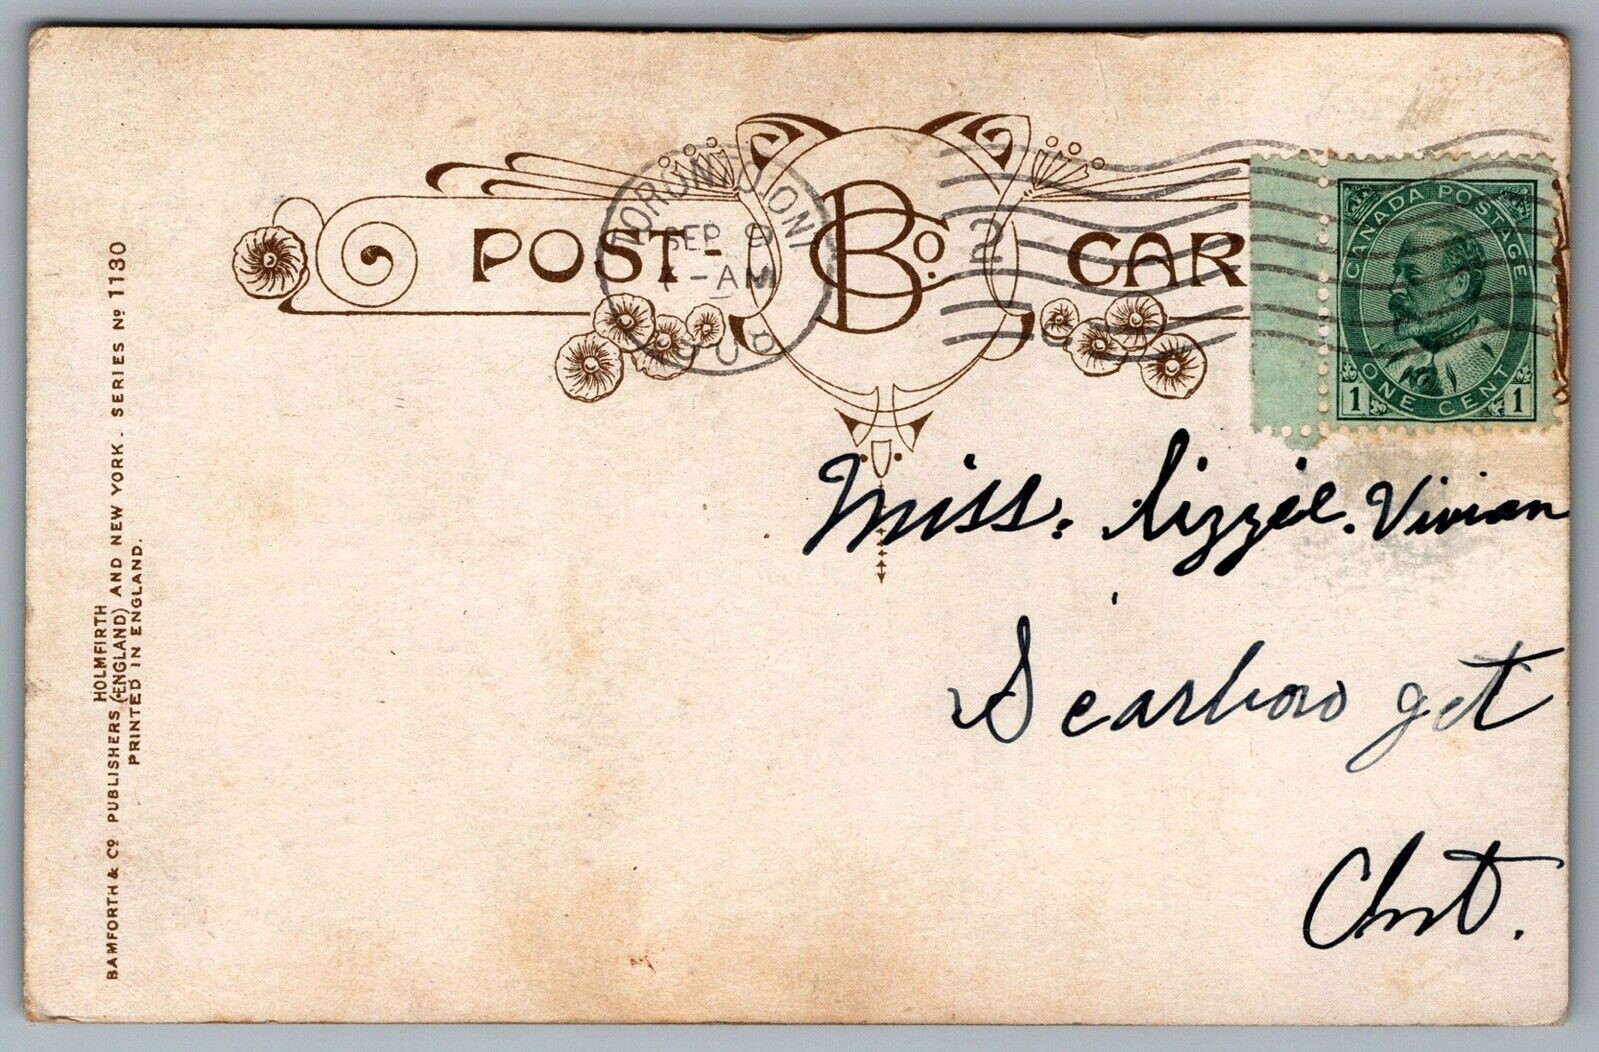 POST- BCo. CAR
TORONTO, ONT
SEP 9
-AM
2
CANADA POSTAGE
ONE CENT
1 1
Miss. Lizzie. Vivian
Scarboro Jct
Ont.
BAMFORTH & Co PUBLISHERS HOLMFIRTH (ENGLAND) AND NEW YORK. SERIES No 1130
PRINTED IN ENGLAND.